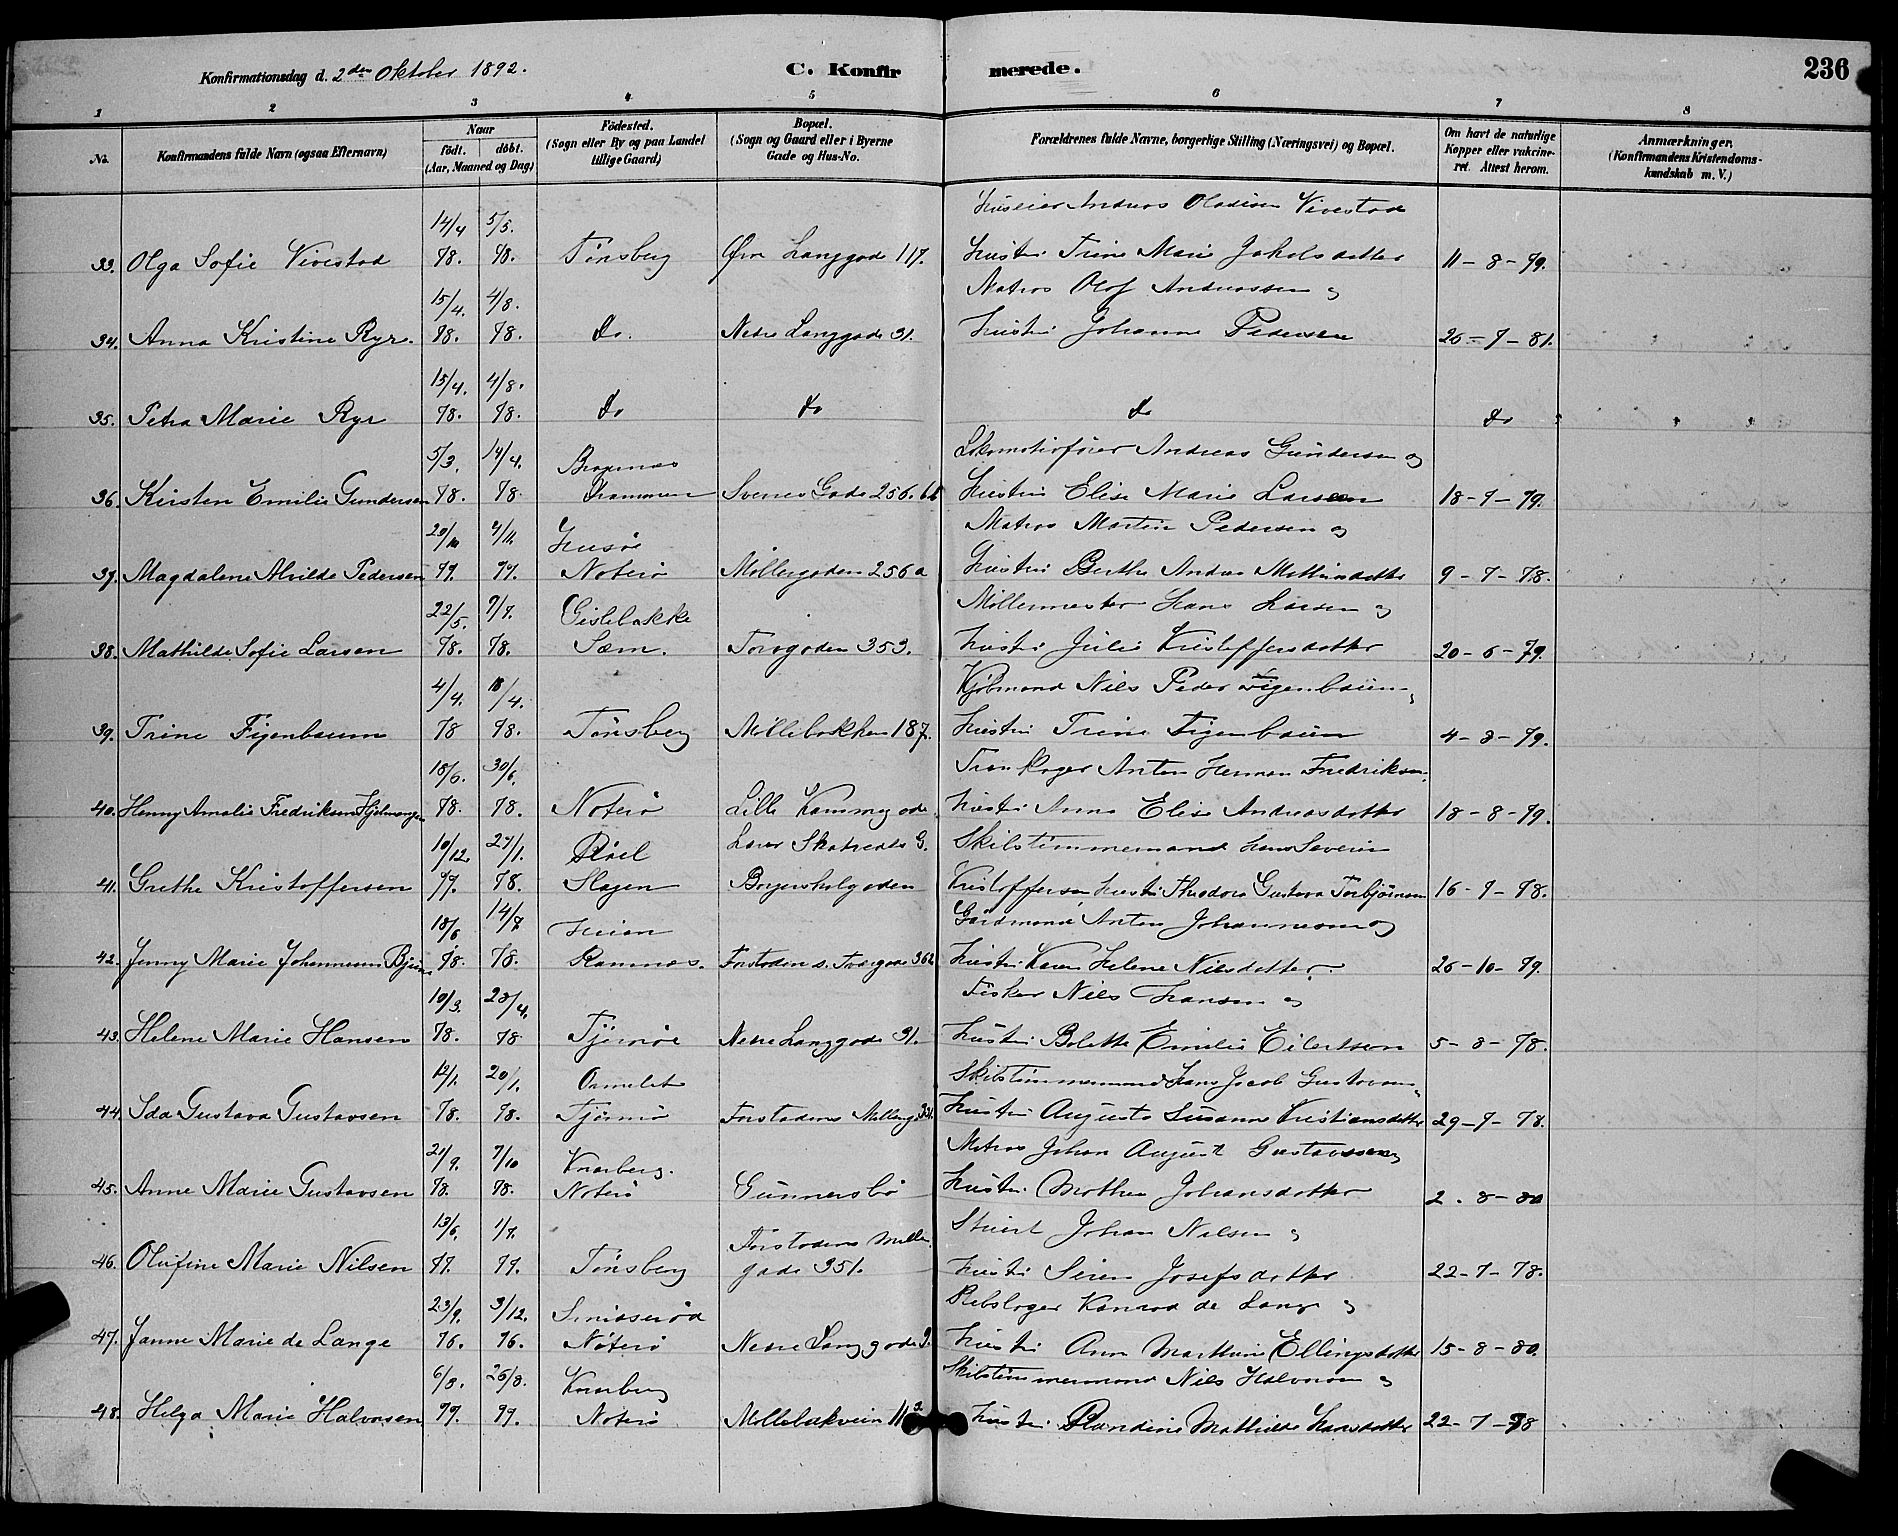 Konfirmationsdag d. 2den Oktober 1892. C. Konfir merede. 236
1 2 3 4 5 6 7 8
No. Konfirmandens fulde Navn (ogsaa Efternavn) Naar født. døbt. (Aar, Maaned og Dag) Födested. (Sogn eller By og paa Landet tillige Gaard) Bopæl. (Sogn og Gaard eller i Byerne Gade og Hus-No. Forældrenes fulde Navne, borgerlige Stilling (Næringsvei) og Bopæl. Om havt de naturlige Kopper eller vakcineret. Attest herom. Anmærkninger. (Konfirmandens Kristendomskundskab m. V.)
14/4 5/5. Huseier Andreas Olausen Vivestad
33. Olga Sofie Vivestad 78. 78. Tønsberg Øvre Langgade 117. Hustru Trine Marie Jakobsdatter 11-8-79.
15/4. 4/8. Matros Olaf Andreassen og
34. Anna Kristine Ryr. 78. 78. do. Nedre Langgade 31. Hustru Johanne Pedersen 26-7-81.
15/4. 4/8.
35. Petra Marie Ryr 78. 78. do do do do
5/3. 14/4. Bragernes Lokomotivfører Andreas Gundersen og
36. Kirsten Emilie Gundersen 78. 78. Drammen Svends Gade 256. Hustru Elise Marie Larsen 18-7-79.
20/10 4/11. Husøe Matros Martin Pedersen og
37. Magdalene Alvilde Pedersen 77. 77. Nøterø Møllergaden 256a Hustru Berthe Andrea 9-7-78.
22/5. 7/7. Gislebakke Møllermester Hans Larsen og
38. Mathilde Sofie Larsen 78. 78. Sæm. Torvgaden 353. Hustru Julie Kristoffersdatter 20-6-79.
4/4. 18/4. Kjøbmand Nils Peder Figenbaum
39. Trine Figenbaum 78 78. Tønsberg Møllebakken 187. Hustru Trine Figenbaum 4-8-79.
18/6. 30/6. Trankoger Anton Herman Fredriksen
40. Henny Amalie Fredriksen 78. 78. Nøterø Lille Kammegade Hustru Anna Elise Andreasdatter 18-8-79.
10/12. 27/1. Røel Lærer Skatvedts G. Skibstømmermand Hans Severin
41. Grethe Kristoffersen 77. 78. Slagen Kristoffersen Hustru Theodora Gustava Torbjørnsen 16-7-78.
18/6 14/7 Gaardmand Anton Johannesen og
42. Jenny Marie Johannesen 78. 78. Ramnes. Forstaden s. Torvgade 362 Hustru Karen Helene Nilsdatter. 26-10-79.
10/3. 28/4. Fisker Nils Hansen og
43. Helene Marie Hansen 78. 78 Tjømøe Nedre Langgade 31. Hustru Bolette Emilie Eilertsen 5-8-78.
12/1. 20/1. Ormelet Skibstømmermand Hans Jacob Gustavsen
44. Ida Gustava Gustavsen 78. 78. Tjømø Forstadens Møllerg. 331. Hustru Augusta Susanne Kristiansdatter 29-7-78.
21/9. 7/10 Knarberg. Matros Johan August Gustavssen og
45. Anne Marie Gustavsen 78. 78. Nøterø Gunnersbø Hustru Mathea Johansdatter 2-8-80
13/6. 1/7. Forstadens Mølle Stuert Johan Nilsen og
46. Olufine Marie Nilsen 77. 77. Tønsberg gade 351. Hustru Siren Josefsdatter 22-7-78.
23/9. 3/12. Smidserød Rebslager Konrad de Lange og
47. Janne Marie de Lange 76. 76. Nøterø Nedre Langgade 9. Hustru Anne Marthine Ellingsdatter 15-8-80.
6/8. 26/8. Knarberg Skibstømmermand Nils Halvorsen og
48. Helga Marie Halvorsen 77. 77. Nøterø Møllebakveien 113. Hustru Randine Mathilde Hansdatter 22-7-78